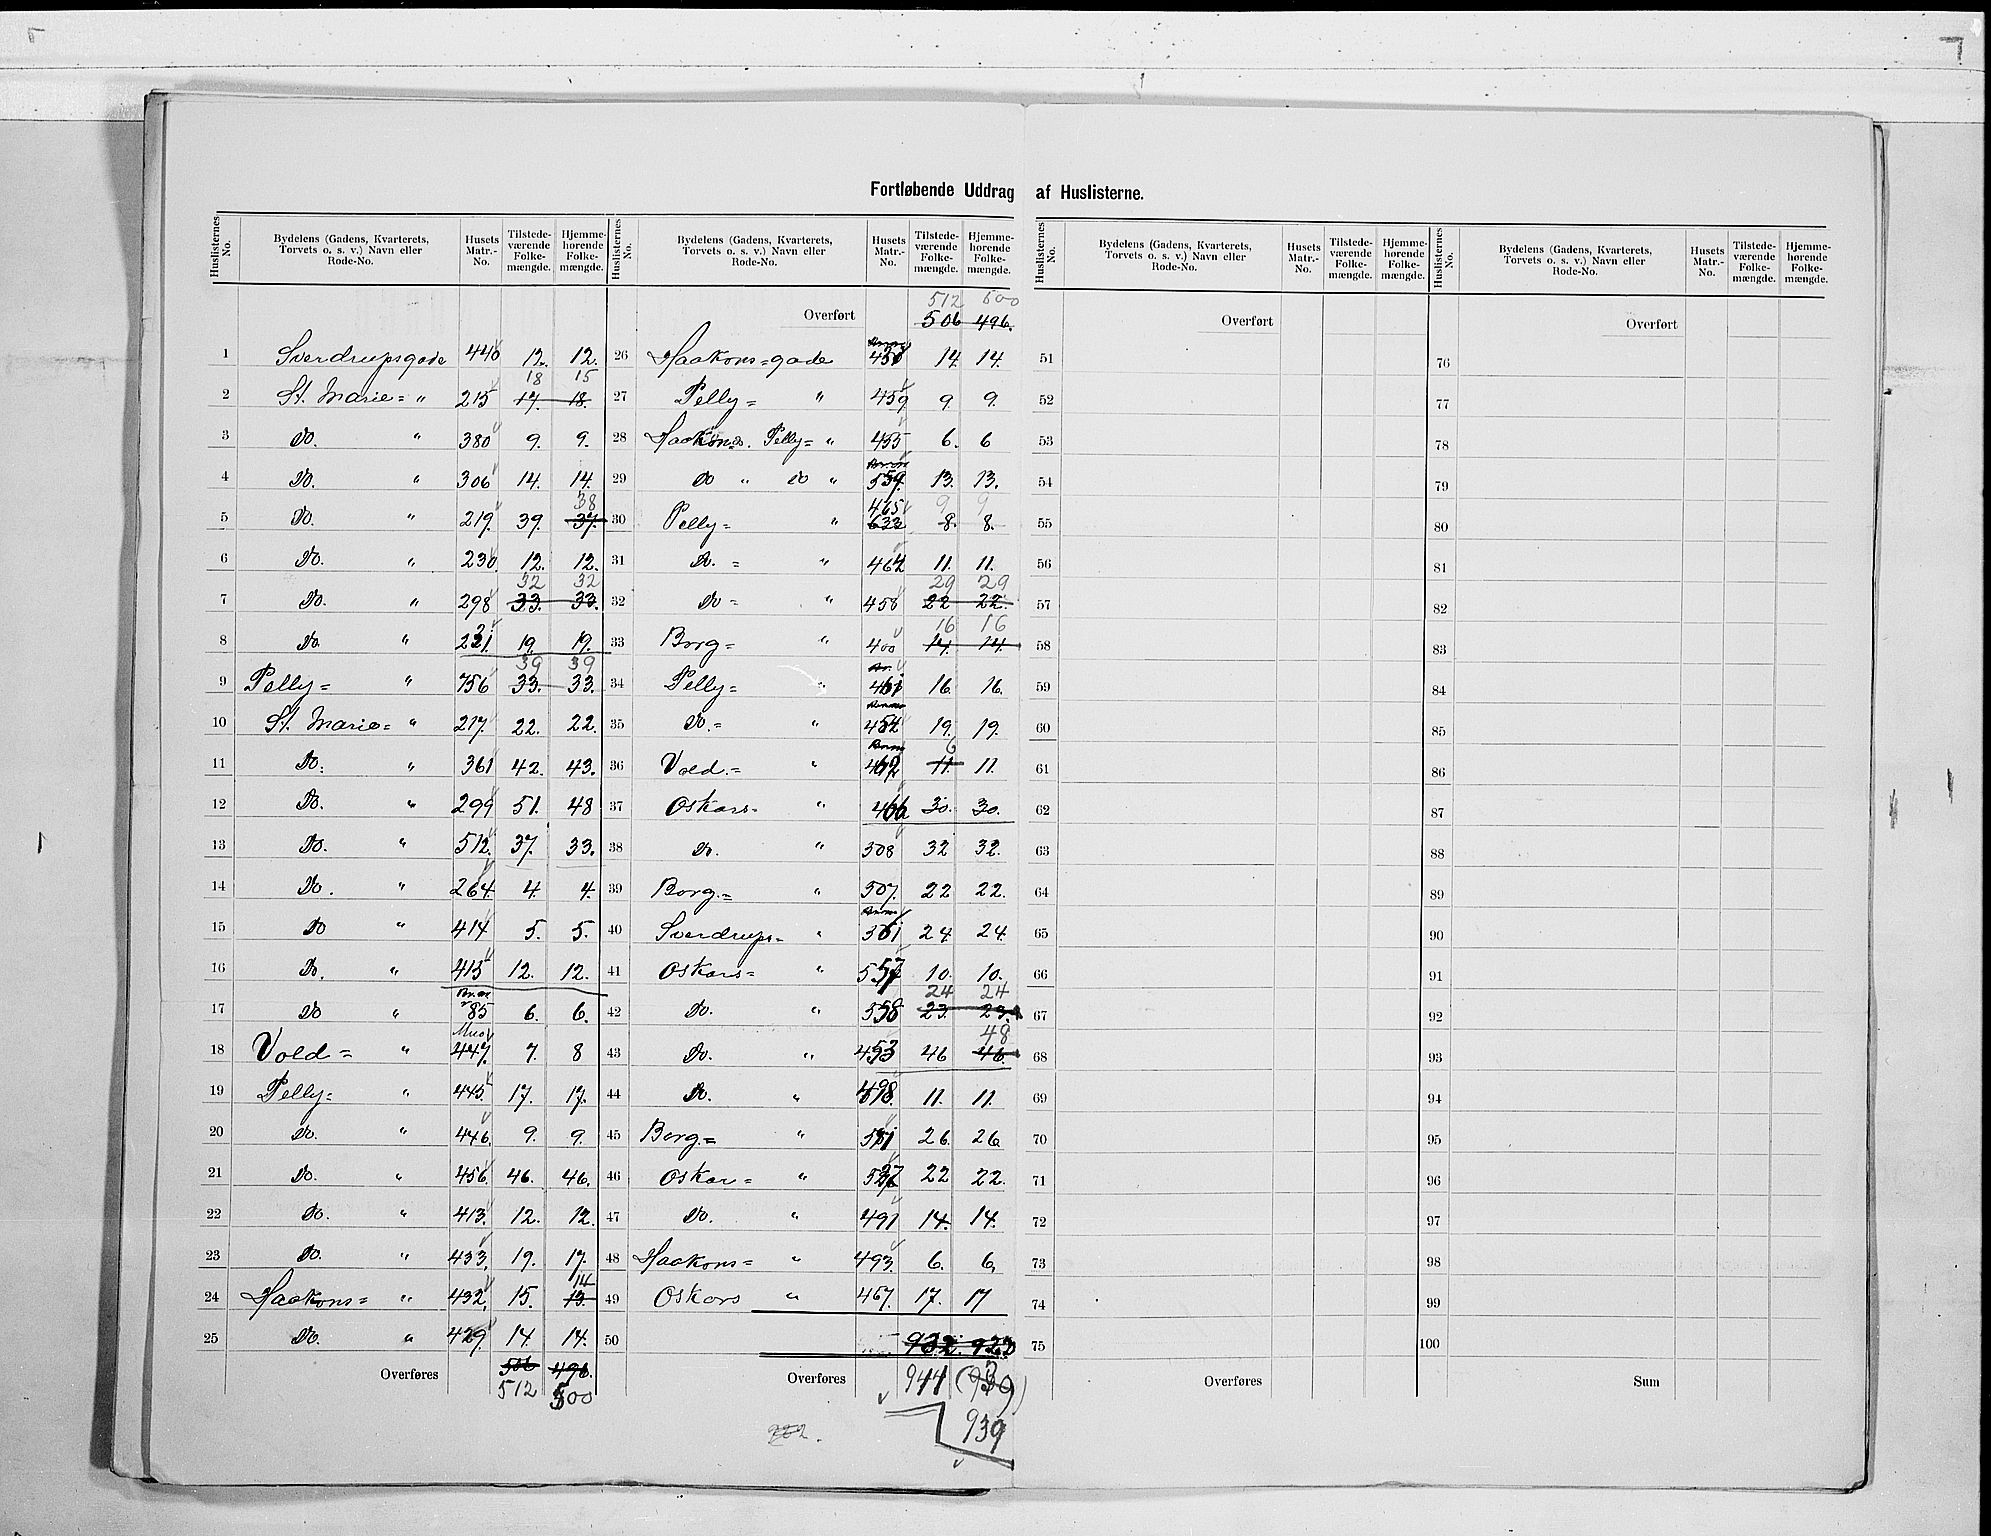 Fortløbende Uddrag af Huslisterne.
Huslisternes No. Bydelens (Gadens, Kvarterets, Torvets o. s. v.) Navn eller Rode-No. Husets Matr.-No. Tilstedeværende Folkemængde. Hjemmehørende Folkemængde.
1 Sverdrupsgade 440 12. 12.
18 15
2 St. Marie= " 215 17. 18.
3 Do. " 380 9. 9.
4 Do. " 306 14. 14.
38
5 Do. " 219. 39. 37.
6 Do. " 230. 12. 12.
32 32
7 Do. " 298 33. 33.
8 Do. " 231. 19. 19.
39 39
9 Pelly= " 756 33. 33.
10 St. Marie= " 217. 22. 22.
11 Do. " 361 42. 43.
12 Do. " 299 51. 48
13 Do. " 512. 37. 33.
14 Do. " 264. 4. 4.
15 Do " 414 5. 5.
16 Do. " 415 12. 12.
17 Do " 85 6. 6.
18 Vold= " 447. 7. 8
19 Pelly= " 445. 17. 17.
20 Do. " 446. 9. 9.
21 Do. " 456. 46. 46.
22 Do. " 413. 12. 12.
23 Do. " 433. 19. 17.
14
24 Haakons= " 432. 15. 13.
25 Do. " 429. 14. 14.
Overføres 506 496.
512 500
Huslisternes No. Bydelens (Gadens, Kvarterets, Torvets o. s. v.) Navn eller Rode-No. Husets Matr.-No. Tilstedeværende Folkemængde. Hjemmehørende Folkemængde.
512 500
Overført 506 496.
26 Haakons=gade 14. 14.
27 Pelly= " 459 9. 9.
28 Haakons. Pelly= " 455 6. 6
29 Do " Do " 559. 13. 13.
465 9 9
30 Pelly= " 633 8. 8.
31 Do. = " 462 11. 11.
29 29
32 Do = " 458 22 22.
16 16
33 Borg= " 400 14. 14.
34 Pelly= " 461 16. 16.
35 Do.= " 19. 19.
6
36 Vold.= " 11. 11.
37 Oskars= " 466 30. 30.
38 Do. " 308 32 32.
39 Borg.= " 507. 22 22.
40 Sverdrups= " 24. 24.
41 Oskars= " 557 10. 10.
24 24
42 Do. " 558 23. 23.
48
43 Do. " 453 46 46.
44 Do. " 498. 11. 11.
45 Borg.= " 26. 26
46 Oskar= " 22 22.
47 Do. " 491 14. 14.
48 Haakons= " 493. 6. 6.
49 Oskars " 467. 17. 17
50 932. 923
Overføres 944 (939)
939
222.
Huslisternes No. Bydelens (Gadens, Kvarterets, Torvets o. s. v.) Navn eller Rode-No. Husets Matr.-No. Tilstedeværende Folkemængde. Hjemmehørende Folkemængde.
Overført
51
52
53
54
55
56
57
58
59
60
61
62
63
64
65
66
67
68
69
70
71
72
73
74
75
Overføres
Huslisternes No. Bydelens (Gadens, Kvarterets, Torvets o. s. v.) Navn eller Rode-No. Husets Matr.-No. Tilstedeværende Folkemængde. Hjemmehørende Folkemængde.
Overført
76
77
78
79
80
81
82
83
84
85
86
87
88
89
90
91
92
93
94
95
96
97
98
99
100
Sum